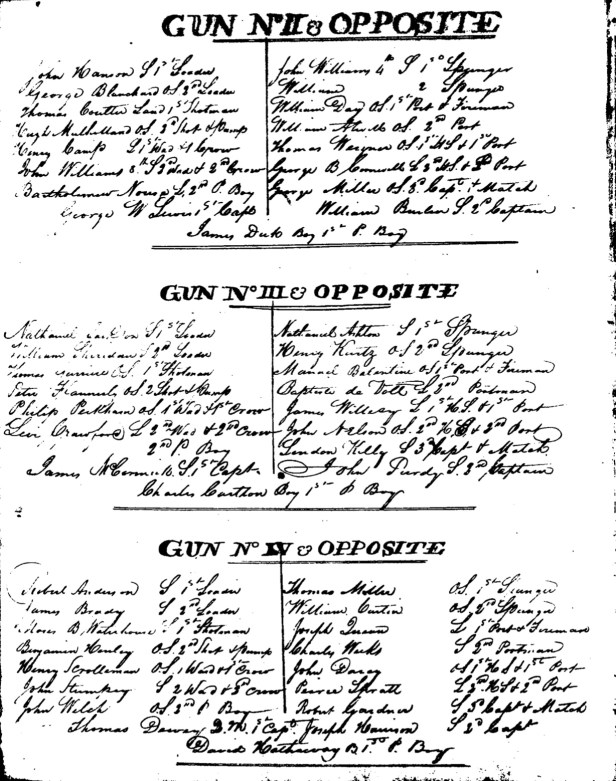 GUN Nº II & OPPOSITE
John Hanson S 1st Loader
George Blanchard OS 2d Loader
Thomas Coulter Land 1st Shotman
Hugh Mulholland OS. 2d Shot & Pump
Henry Camp L 1st Wad & Crow
John Williams 3th S 2d Wad & 2d Crow
Bartholomew L. 2nd P. Boy
George W Lewis 1st Capt
John Williams 4th S 1st Spunger
William 2 Spunger
William Day OS. 1st Port & Fireman
William OS. 2d Port
Thomas Wagner OS 1st H.S & 1st Port
George B L 2d H.S. & 2d Port
George Miller OS. 3d Capt & Match
William S. 2d Captain
James Dick Boy 1st P. Boy
GUN Nº III & OPPOSITE
Nathaniel S 1st Loader
William Sheridan S 2d Loader
Thomas OS. 1st Shotman
Peter OS. 2 Shot & Pump
Philip Peckham OS. 1st Wad & 1st Crow
Levi Crawford L 2d Wad & 2d Crow
2nd P Boy
James S. 1st Capt
Nathaniel Ashton S 1st Spunger
Henry Kurtz OS 2nd Spunger
Manuel Balentine OS 1st Port & Fireman
Baptiste de Volt L 2d Portman
James L 1st H.S. & 1st Port
John Nelson OS. 2d H.S & 2d Port
London Kelly S 3d Capt & Match
John Purdy S. 2d Captain
Charles Boy 1st P Boy
GUN Nº IV & OPPOSITE
Robert Anderson S 1st Loader
James Brady S 2d Loader
Moses B. Waterhouse S 1st Shotman
Benjamin Henley OS. 2d Shot & pump
Henry Scrolleman OS 1 Wad & 1st Crow
John S 2 Wad & 2d Crow
John Welch OS. 2d P Boy
Thomas Q.M. 1st Capt
Thomas Miller OS. 1st Spunger
William Curtin OS. 2d Spunger
Joseph L 1st Port & Fireman
Charles Weeks S 2d Portman
John Darcy OS 1st H S & 1st Port
Pierce Spratt L 2d H.S & 2d Port
Robert Gardner S 3d Capt & Match
Joseph Harrison S 2d Capt
David Hathaway B 1st P. Boy